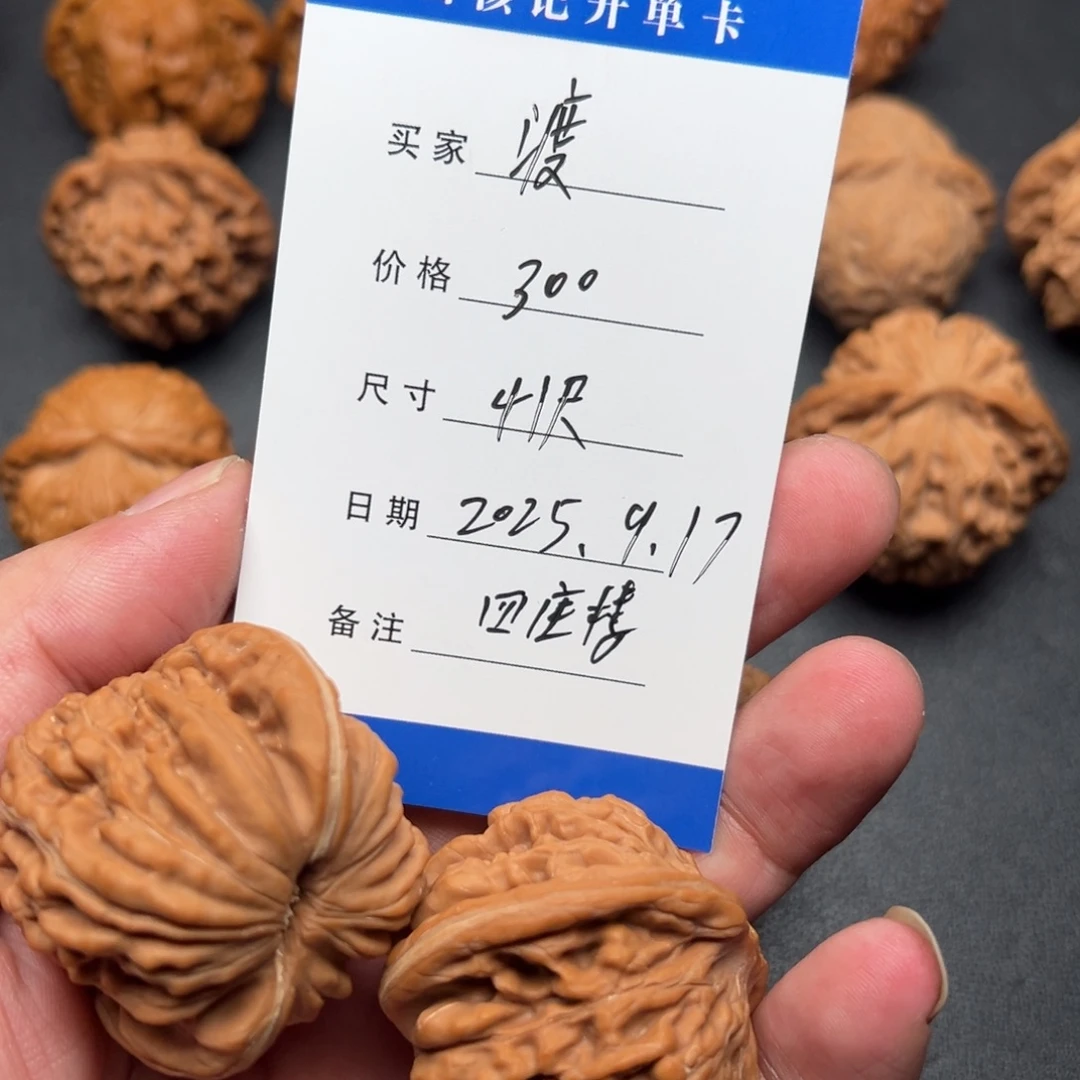 核记开单卡
买家 渡
价格 300
尺寸 41尺
日期 2025.9.17
备注 四座楼